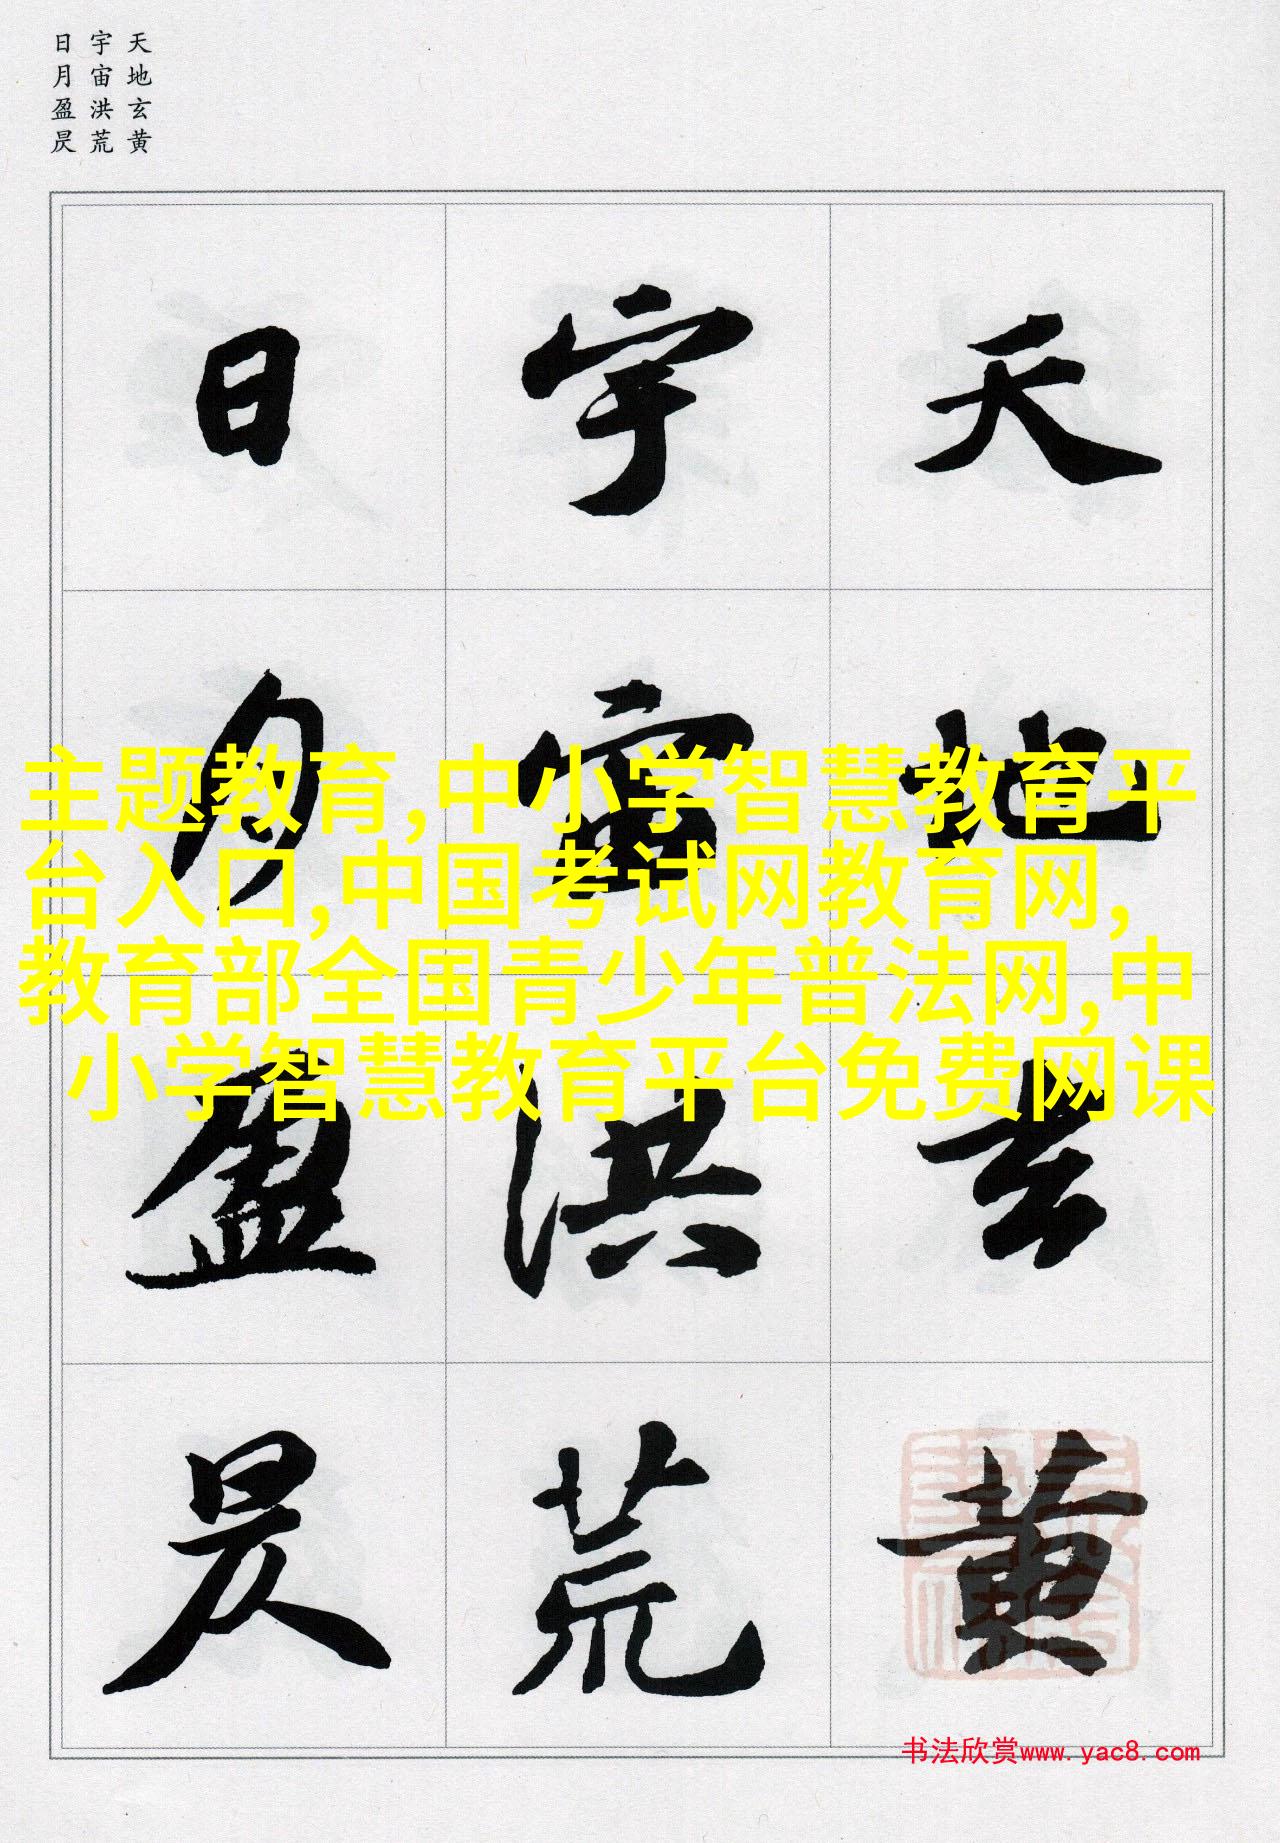 天地玄黄
宇宙洪荒
日月盈昃
天地玄黄
宇宙洪荒
日月盈昃
主题教育,中小学智慧教育平
台入口,中国考试网教育网,
教育部全国青少年普法网,中
小学智慧教育平台免费网课
书法欣赏www.yac8.com